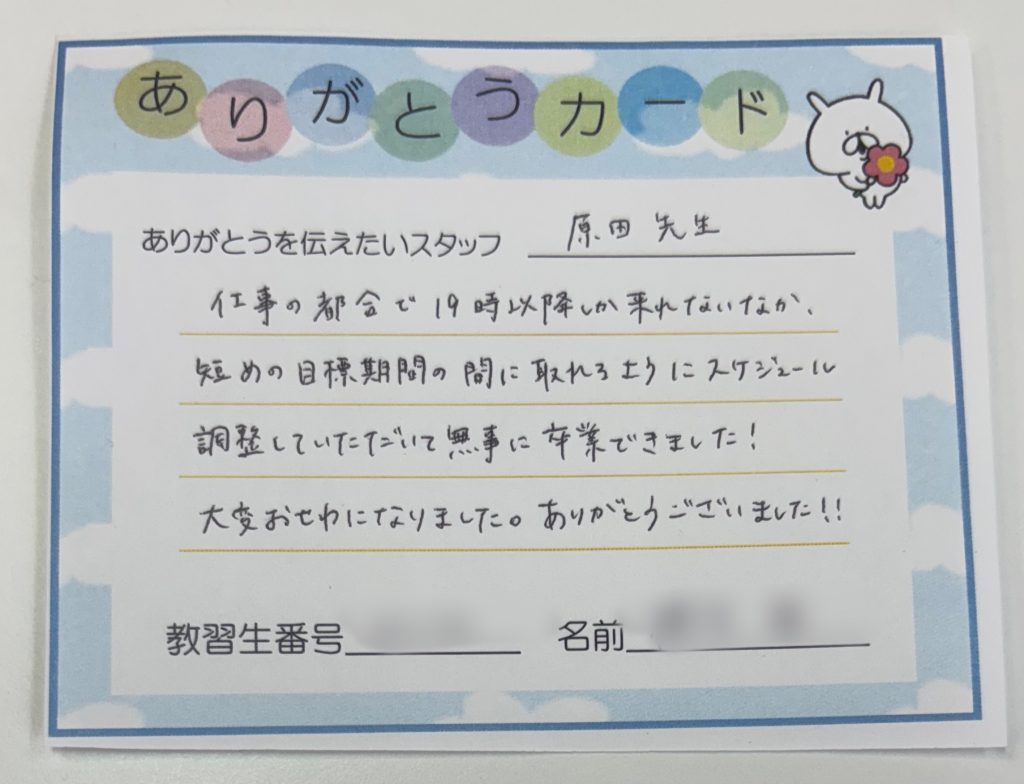 ありがとうカード
ありがとうを伝えたいスタッフ 原田先生
仕事の都合で19時以降しか来れないなか、
短めの目標期間の間に取れるようにスケジュール
調整していただいて無事に卒業できました!
大変おせわになりました。ありがとうございました!!
教習生番号 名前